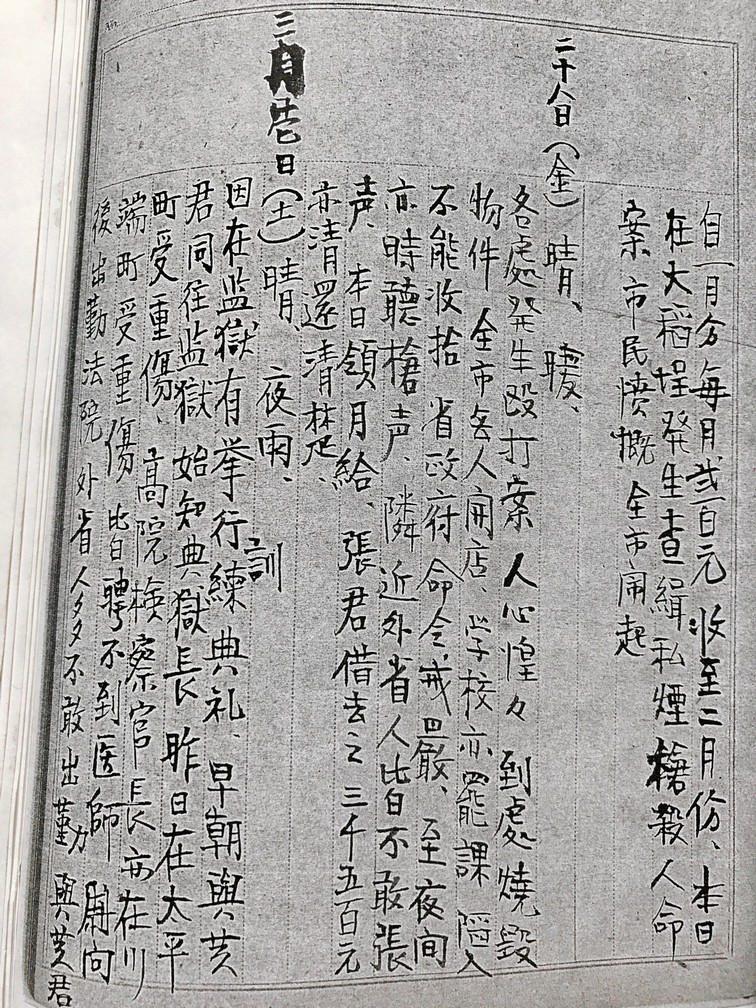 自一月分每月貳百元收至二月份、本日
在大稻埕發生查緝私煙槍殺人命
案市民憤慨全市鬧起
二十八日(金)晴、暖、
各處発生毆打案人心惶々到處燒毀
物件全市各人閉店、学校亦罷課陷入
不能收拾省政府命令戒嚴、至夜间
亦時聽槍声、隣近外省人皆不敢張
声、本日領月給、張君借去之三千五百元
亦清還清楚、
三月壱日(土)晴、夜雨、
因在监獄有举行練訓典礼、早朝與黄
君同往监獄始知典獄長昨日在太平
町受重傷、高院檢察官長亦在川
端町受重傷皆聘不到医師
後出勤法院外省人多不敢出勤與黄君